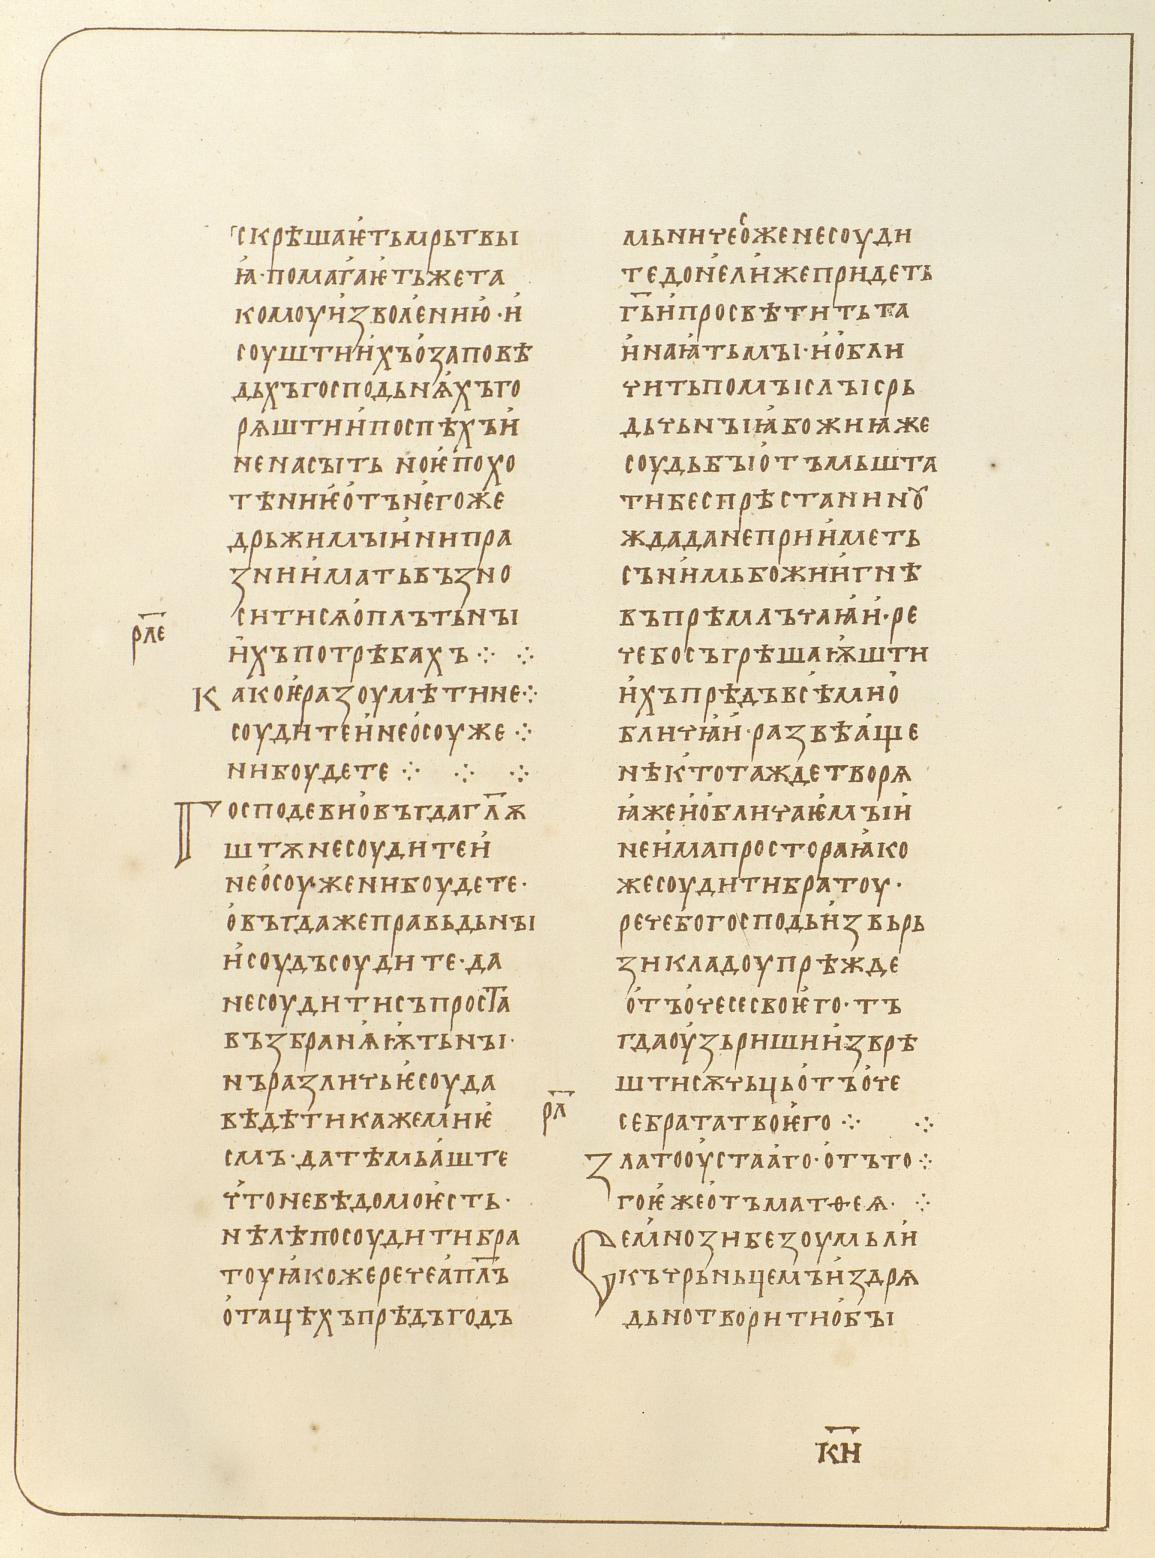 скрѣшаѥтъмрьтвы
ꙗ·помагаѥтьжета
комоуизволениѭ·и
соуштиихъозаповѣ
дьхъгосподьнѧхъго
рѧштиипоспѣхъи
ненасыть ноѥпохо
тѣниѥотънегоже
дрьжимыинипра
зниимать
ситисѧоплътьны
ихъпотрѣбахъ ⁘ ⁘
рл҃е
какоѥразоумѣтине⁘
соудитеинеосоуже⁘
нибоудете ⁘ ⁘ ⁘
господевиовъгдагл҃ѭ
штѫнесоудитеи
неосоуженибоудете·
овъгдажеправьдьны
исоудъсоудите·да
несоудитисъпроста
възбранѧѭтьны·
нъразличьѥсоуда
вѣдѣтикажеминѥ
смъ·датѣмьаште
чтоневѣдомоѥсть·
нѣлѣпосоудитибра
тоуꙗкожеречеап҃лъ
отацѣхъпрѣдъгодъ
мьничеⷭ҇оженесоуди
тедонелижепридеть
гь҃ипросвѣтитьта
инаꙗтьмꙑ·иобли
читьпомꙑслꙑсрь
дьчьнꙑꙗбожиꙗже
соудьбꙑотъмьшта
тибеспрѣстанинꙋ
ждаданеприиметь
съ нимьбожиигнѣ
въпрѣмлъчаꙗи·ре
чебосъгрѣшаѭшти
ихъпрѣдъвсѣмио
бличꙗи·развѣаще
нѣктотаждетворѧ
ꙗжеиобличаѥмꙑи
неимапростораꙗко
жесоудитибратоу·
речебогосподьизвьрь
зикладоупрѣжде
отъочесесвоѥго·тъ
гдаоузьришиизврѣ
штисѫчьцьотъоче
себрататвоѥго ⁘ ⁘
рл҃
златооустааго·отъто⁘
гоѥжеотъматѳеѧ· ⁘
семнозибезоумьли
къчрьньцемъиздрѧ
дьнотворитиобꙑ
к҃и